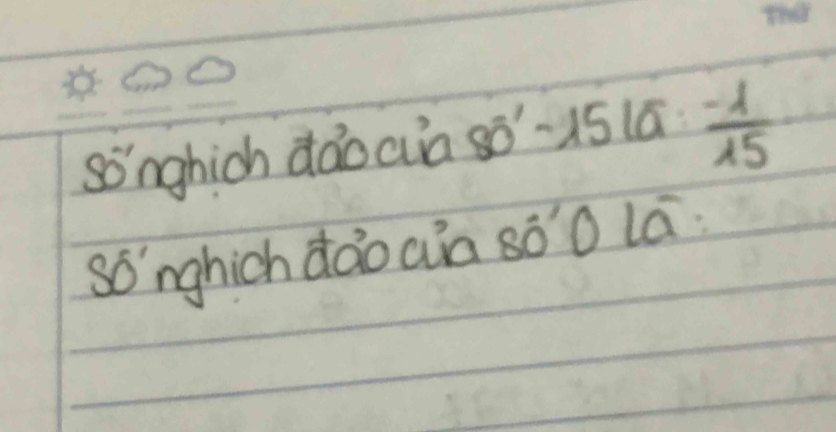 Thứ
số nghịch đảo của số -15 là: -1/15
số nghịch đảo của số 0 là: